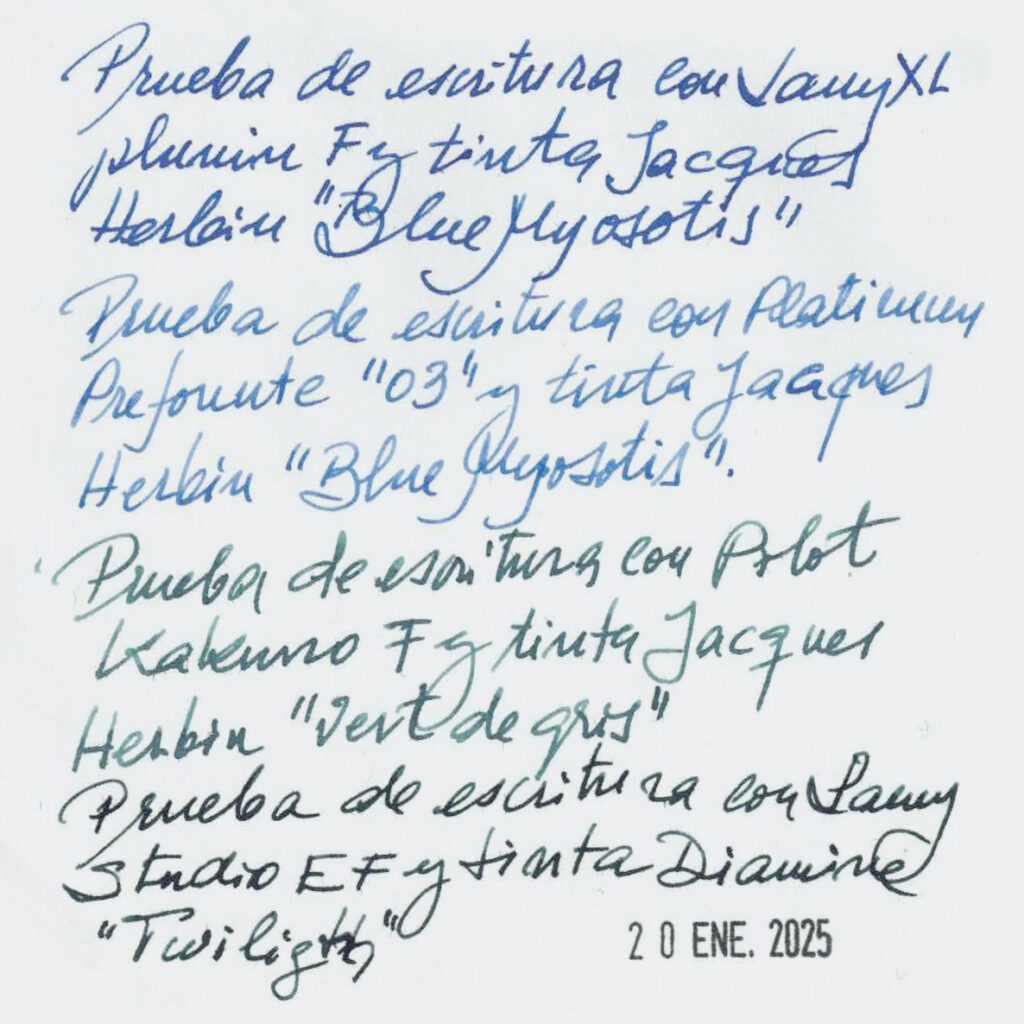 Prueba de escritura con Lamy XL
plumin F y tinta Jacques
Herbin "Blue Myosotis"
Prueba de escritura con Platinum
Prefounte "03" y tinta Jacques
Herbin "Blue Myosotis".
Prueba de escritura con Pilot
Kakuno F y tinta Jacques
Herbin "Vert de gris"
Prueba de escritura con Lamy
Studio EF y tinta Diamine
"Twiligth"
20 ENE. 2025